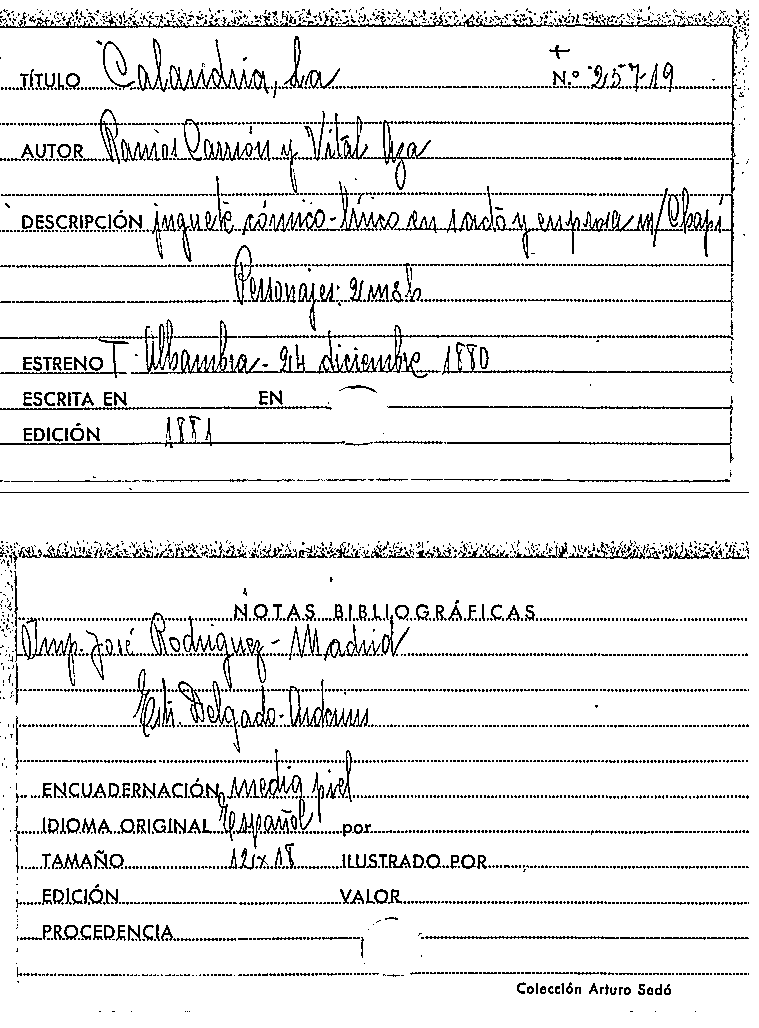 TÍTULO Calandria, La N.º 257-19
AUTOR Ramos Carrión y Vital Aza
DESCRIPCIÓN juguete cómico-lírico en 1 acto y en prosa m/ Chapí
Personajes: 2 m 8 h
ESTRENO T. Alhambra - 24 diciembre 1880
ESCRITA EN EN
EDICIÓN 1881
NOTAS BIBLIOGRÁFICAS
Imp. José Rodriguez - Madrid
Edit. Delgado-
ENCUADERNACIÓN media piel
IDIOMA ORIGINAL Español por
TAMAÑO 12 x 18 ILUSTRADO POR
EDICIÓN VALOR
PROCEDENCIA
Colección Arturo Sedó